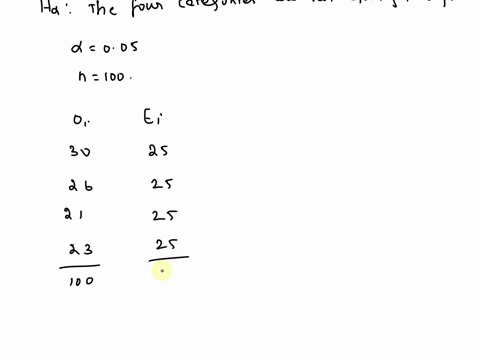 Ha: The four categories
α = 0.05
n = 100.
Oi Ei
30 25
26 25
21 25
23 25
100